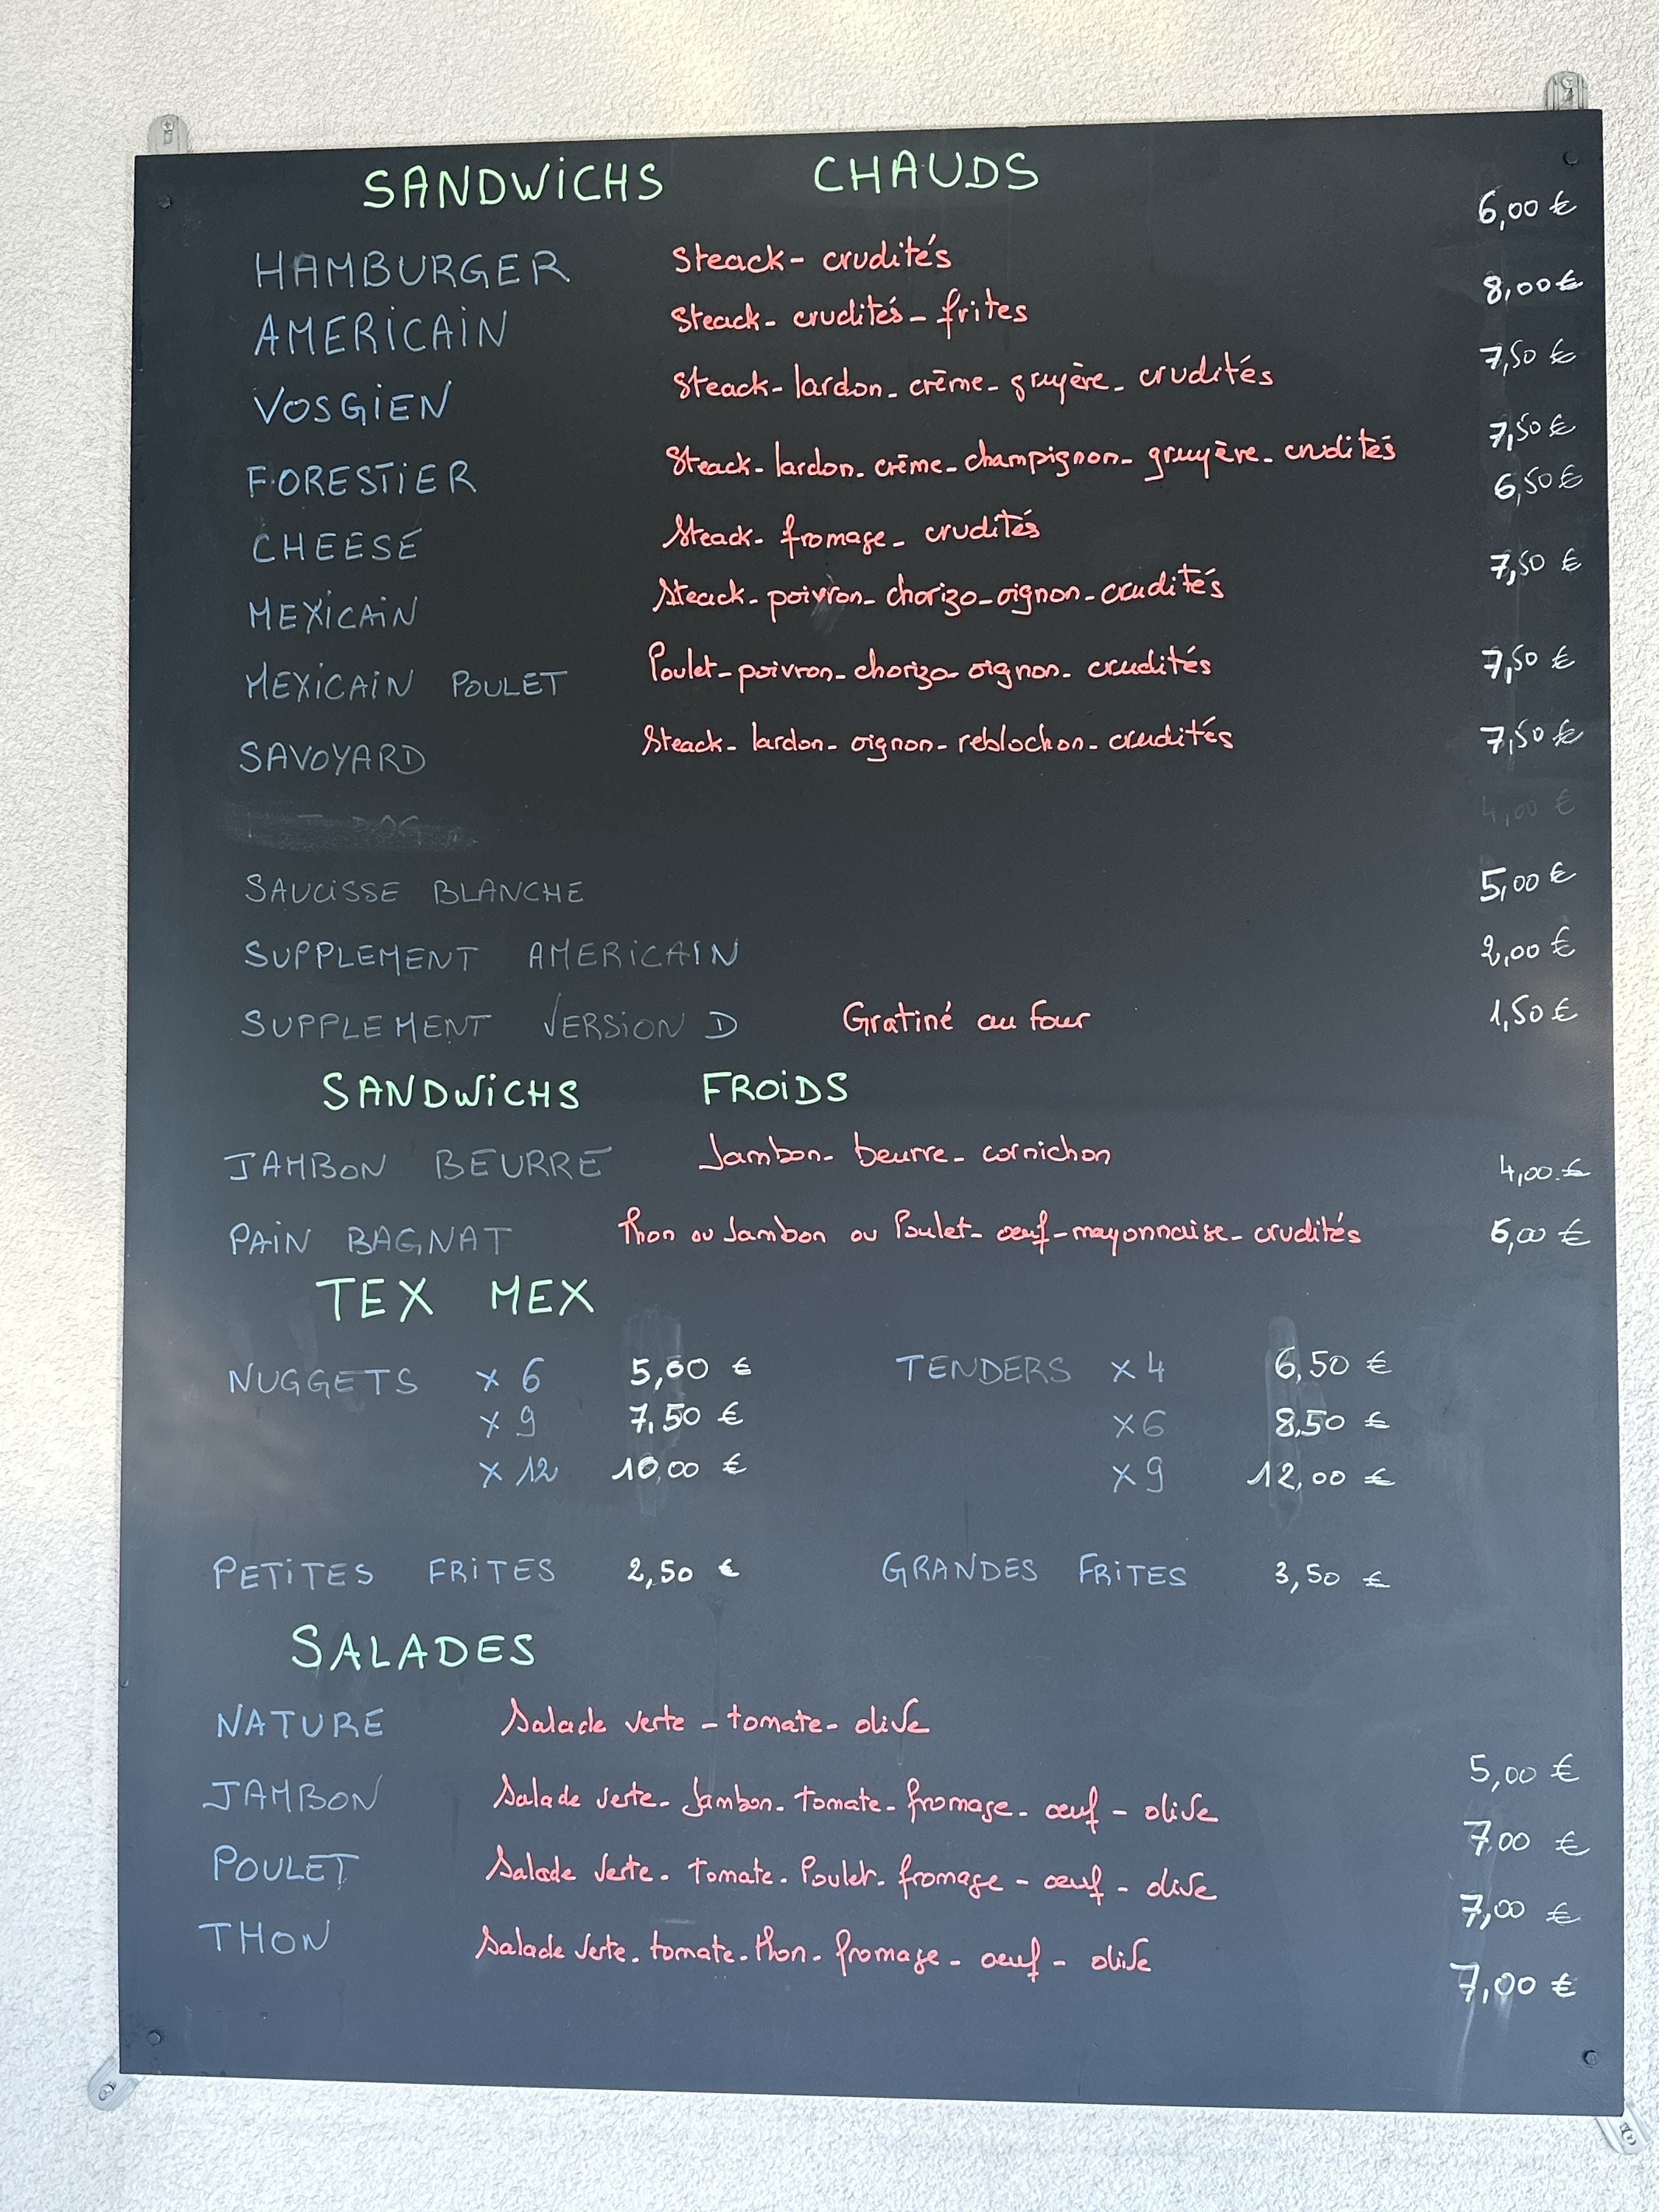 SANDWiCHS CHAUDS
HAMBURGER Steack- crudités 6,00 €
AMERiCAiN Steack- crudités- frites 8,00 €
VOSGiEN Steack- lardon- crème- gruyère- crudités 7,50 €
FORESTiER Steack- lardon- crème- champignon- gruyère- crudités 7,50 €
CHEESE Steack- fromage- crudités 6,50 €
MEXiCAiN Steack- poivron- chorizo- oignon- crudités 7,50 €
MEXiCAiN POULET Poulet- poivron- chorizo- oignon- crudités 7,50 €
SAVOYARD Steack- lardon- oignon- reblochon- crudités 7,50 €
4,00 €
SAUCiSSE BLANCHE 5,00 €
SUPPLEMENT AMERiCAIN 2,00 €
SUPPLEMENT VERSION D Gratiné au four 1,50 €
SANDWiCHS FROiDS
JAMBON BEURRE Jambon- beurre- cornichon 4,00 €
PAiN BAGNAT Thon ou Jambon ou Poulet- œuf- mayonnaise- crudités 6,00 €
TEX MEX
NUGGETS x 6 5,00 € TENDERS x 4 6,50 €
x 9 7,50 € x 6 8,50 €
x 12 10,00 € x 9 12,00 €
PETiTES FRiTES 2,50 € GRANDES FRiTES 3,50 €
SALADES
NATURE Salade verte- tomate- olive 5,00 €
JAMBON Salade verte- Jambon- tomate- fromage- œuf- olive 7,00 €
POULET Salade verte- tomate- Poulet- fromage- œuf- olive 7,00 €
THON Salade verte- tomate- thon- fromage- œuf- olive 7,00 €